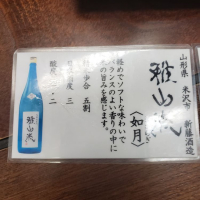 山形県 米沢市 新藤酒造
雅山流
〈如月〉
軽めでソフトな味わいで
バランスのよい香りの中に
米の旨みを感じます。
歩合 五割
度 三
酸度 一・二
雅山流